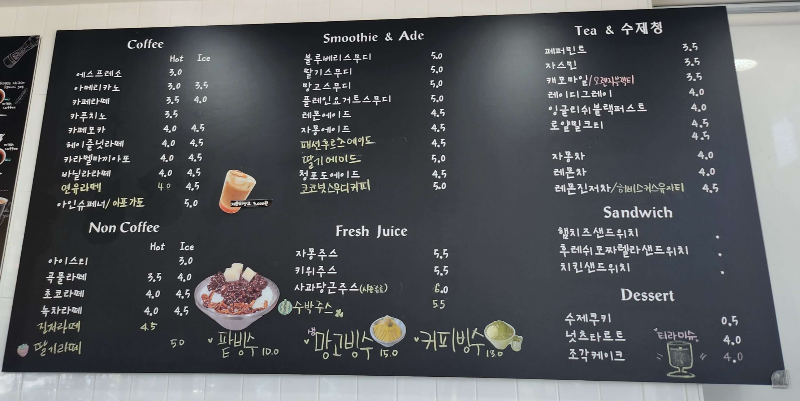 Coffee
Hot Ice
에스프레소 3.0
아메리카노 3.0 3.5
카페라떼 3.5 4.0
카푸치노 3.5
카페모카 4.0 4.5
헤이즐넛라떼 4.0 4.5
카라멜마끼아또 4.0 4.5
바닐라라떼 4.0 4.5
연유라떼 4.0 4.5
아인슈페너/아포가토 5.0
Non Coffee
Hot Ice
아이스티 3.0
곡물라떼 3.5 4.0
초코라떼 4.0 4.5
녹차라떼 4.0 4.5
4.5
딸기라떼 5.0
Smoothie & Ade
블루베리스무디 5.0
딸기스무디 5.0
망고스무디 5.0
플레인요거트스무디 5.0
레몬에이드 4.5
자몽에이드 4.5
패션후르츠에이드 4.5
딸기에이드 5.0
청포도에이드 4.5
코코넛스무디커피 5.0
Fresh Juice
자몽주스 5.5
키위주스 5.5
사과당근주스 6.0
수박주스 5.5
팥빙수 10.0
망고빙수 15.0
커피빙수 13.0
Tea & 수제청
페퍼민트 3.5
자스민 3.5
캐모마일/ 3.5
레이디그레이 4.0
잉글리쉬블랙퍼스트 4.0
로얄밀크티 4.5
4.5
자몽차 4.0
레몬차 4.0
레몬진저차/히비스커스유자티 4.5
Sandwich
햄치즈샌드위치
후레쉬모짜렐라샌드위치
치킨샌드위치
Dessert
수제쿠키 0.5
넛츠타르트 4.0
조각케이크 4.0
티라미슈